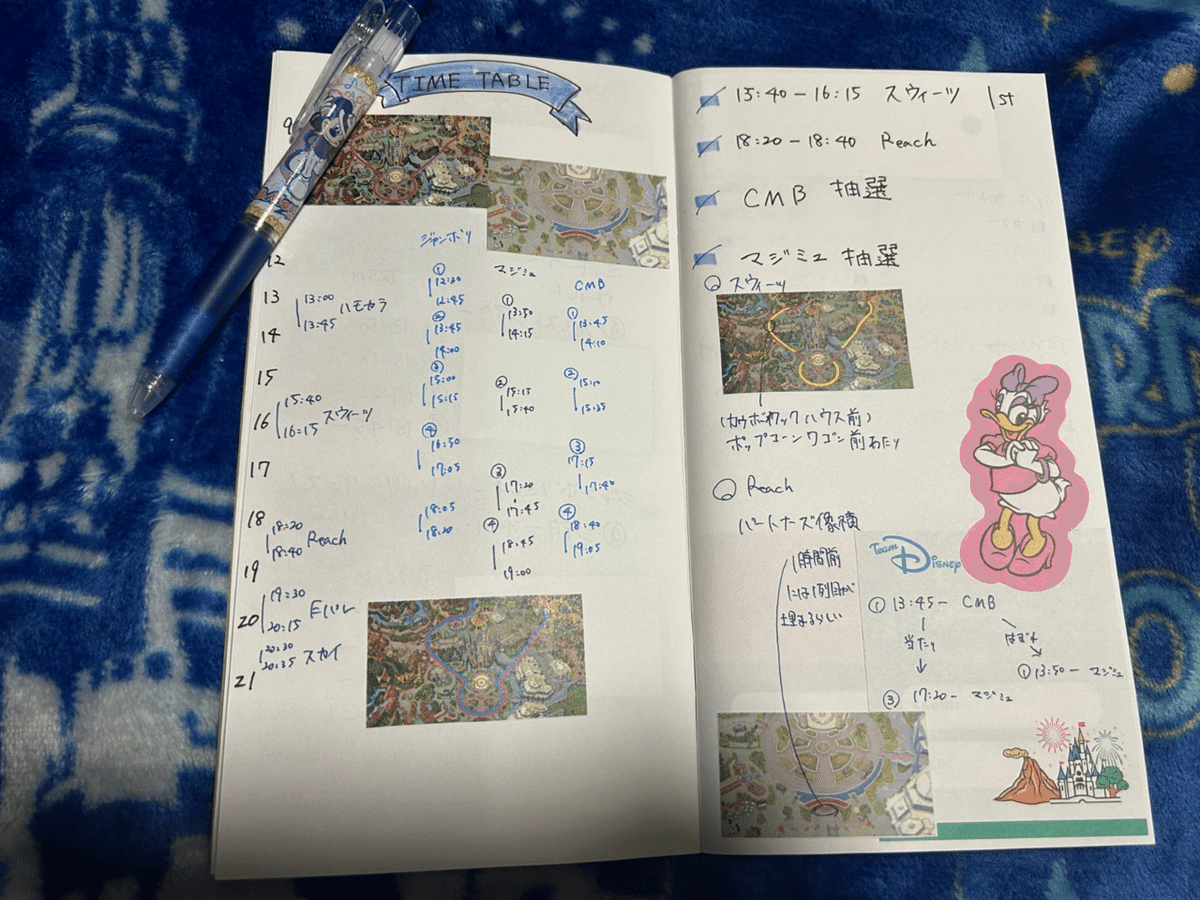 TIME TABLE
9
12
13
13:00
13:45
ハモカラ
14
15
15:40
16:15
スウィーツ
16
17
18
18:20
18:40
Reach
19
19:30
20:15
Eパレ
20
20:30
20:35
スカイ
21
ジャンボリ
①
12:30
12:45
②
13:45
14:00
③
15:00
15:15
④
16:50
17:05
18:05
18:20
マジミュ
①
13:50
14:15
②
15:15
15:40
③
17:20
17:45
④
18:45
19:00
CMB
①
13:45
14:10
②
15:10
15:35
③
17:15
17:40
④
18:40
19:05
15:40-16:15 スウィーツ 1st
18:20-18:40 Reach
CMB 抽選
マジミュ 抽選
スウィーツ
(カウボーイクックハウス前)
ポップコーンワゴン前あたり
Reach
パートナーズ像横
1時間前
には1列目が
埋まるらしい
Team Disney
① 13:45- CMB
当たり
はずれ
① 13:50- マジミュ
③ 17:20- マジミュ